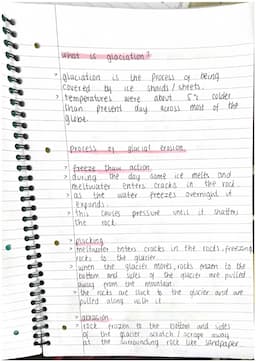 what is glaciation?
> glaciation is the process of being
covered by ice sheets.
> temperatures were about 5°c colder
than present day across most of the
globe.
process of glacial erosion
> freeze thaw action
> during the day some ice melts and
meltwater enters cracks in the rock
> as the water freezes overnight it
expands.
> this causes pressure until it shatters
the rock
> plucking
> meltwater enters cracks in the rocks, freezing
rocks to the glacier
> when the glacier moves, rocks frozen to the
bottom and sides of the glacier are pulled
away from the mountain.
> the rocks are stuck to the glacier and are
pulled along with it.
> abrasion
> rock frozen to the bottom and sides
of the glacier scratch / scrape away
at the surrounding rock like sandpaper